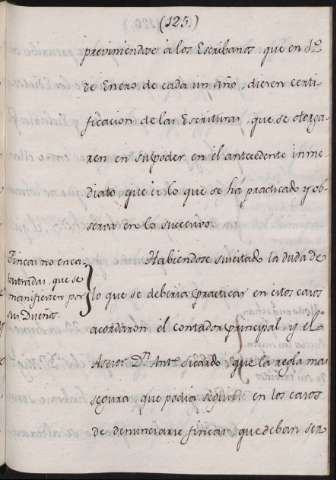 (125.)
previniendose a los Escribanos que en 1.º
de Enero de cada un año, diesen certi-
ficacion de las Escrituras, que se otorga-
ren en su poder en el antecedente inme-
diato que es lo que se ha practicado y ob-
servar en lo sucesivo.
Fincas no enca-
bastradas, que se
manifiesten por
su Dueños.
Habiendose suscitado la duda de
lo que se deberia practicar en estos casos
acordaron el contador principal y el
Asesor D.n Ant.º Sicardo, que la regla mas
segura que podia seguirse en los casos
de denunciarse fincas que deban ser